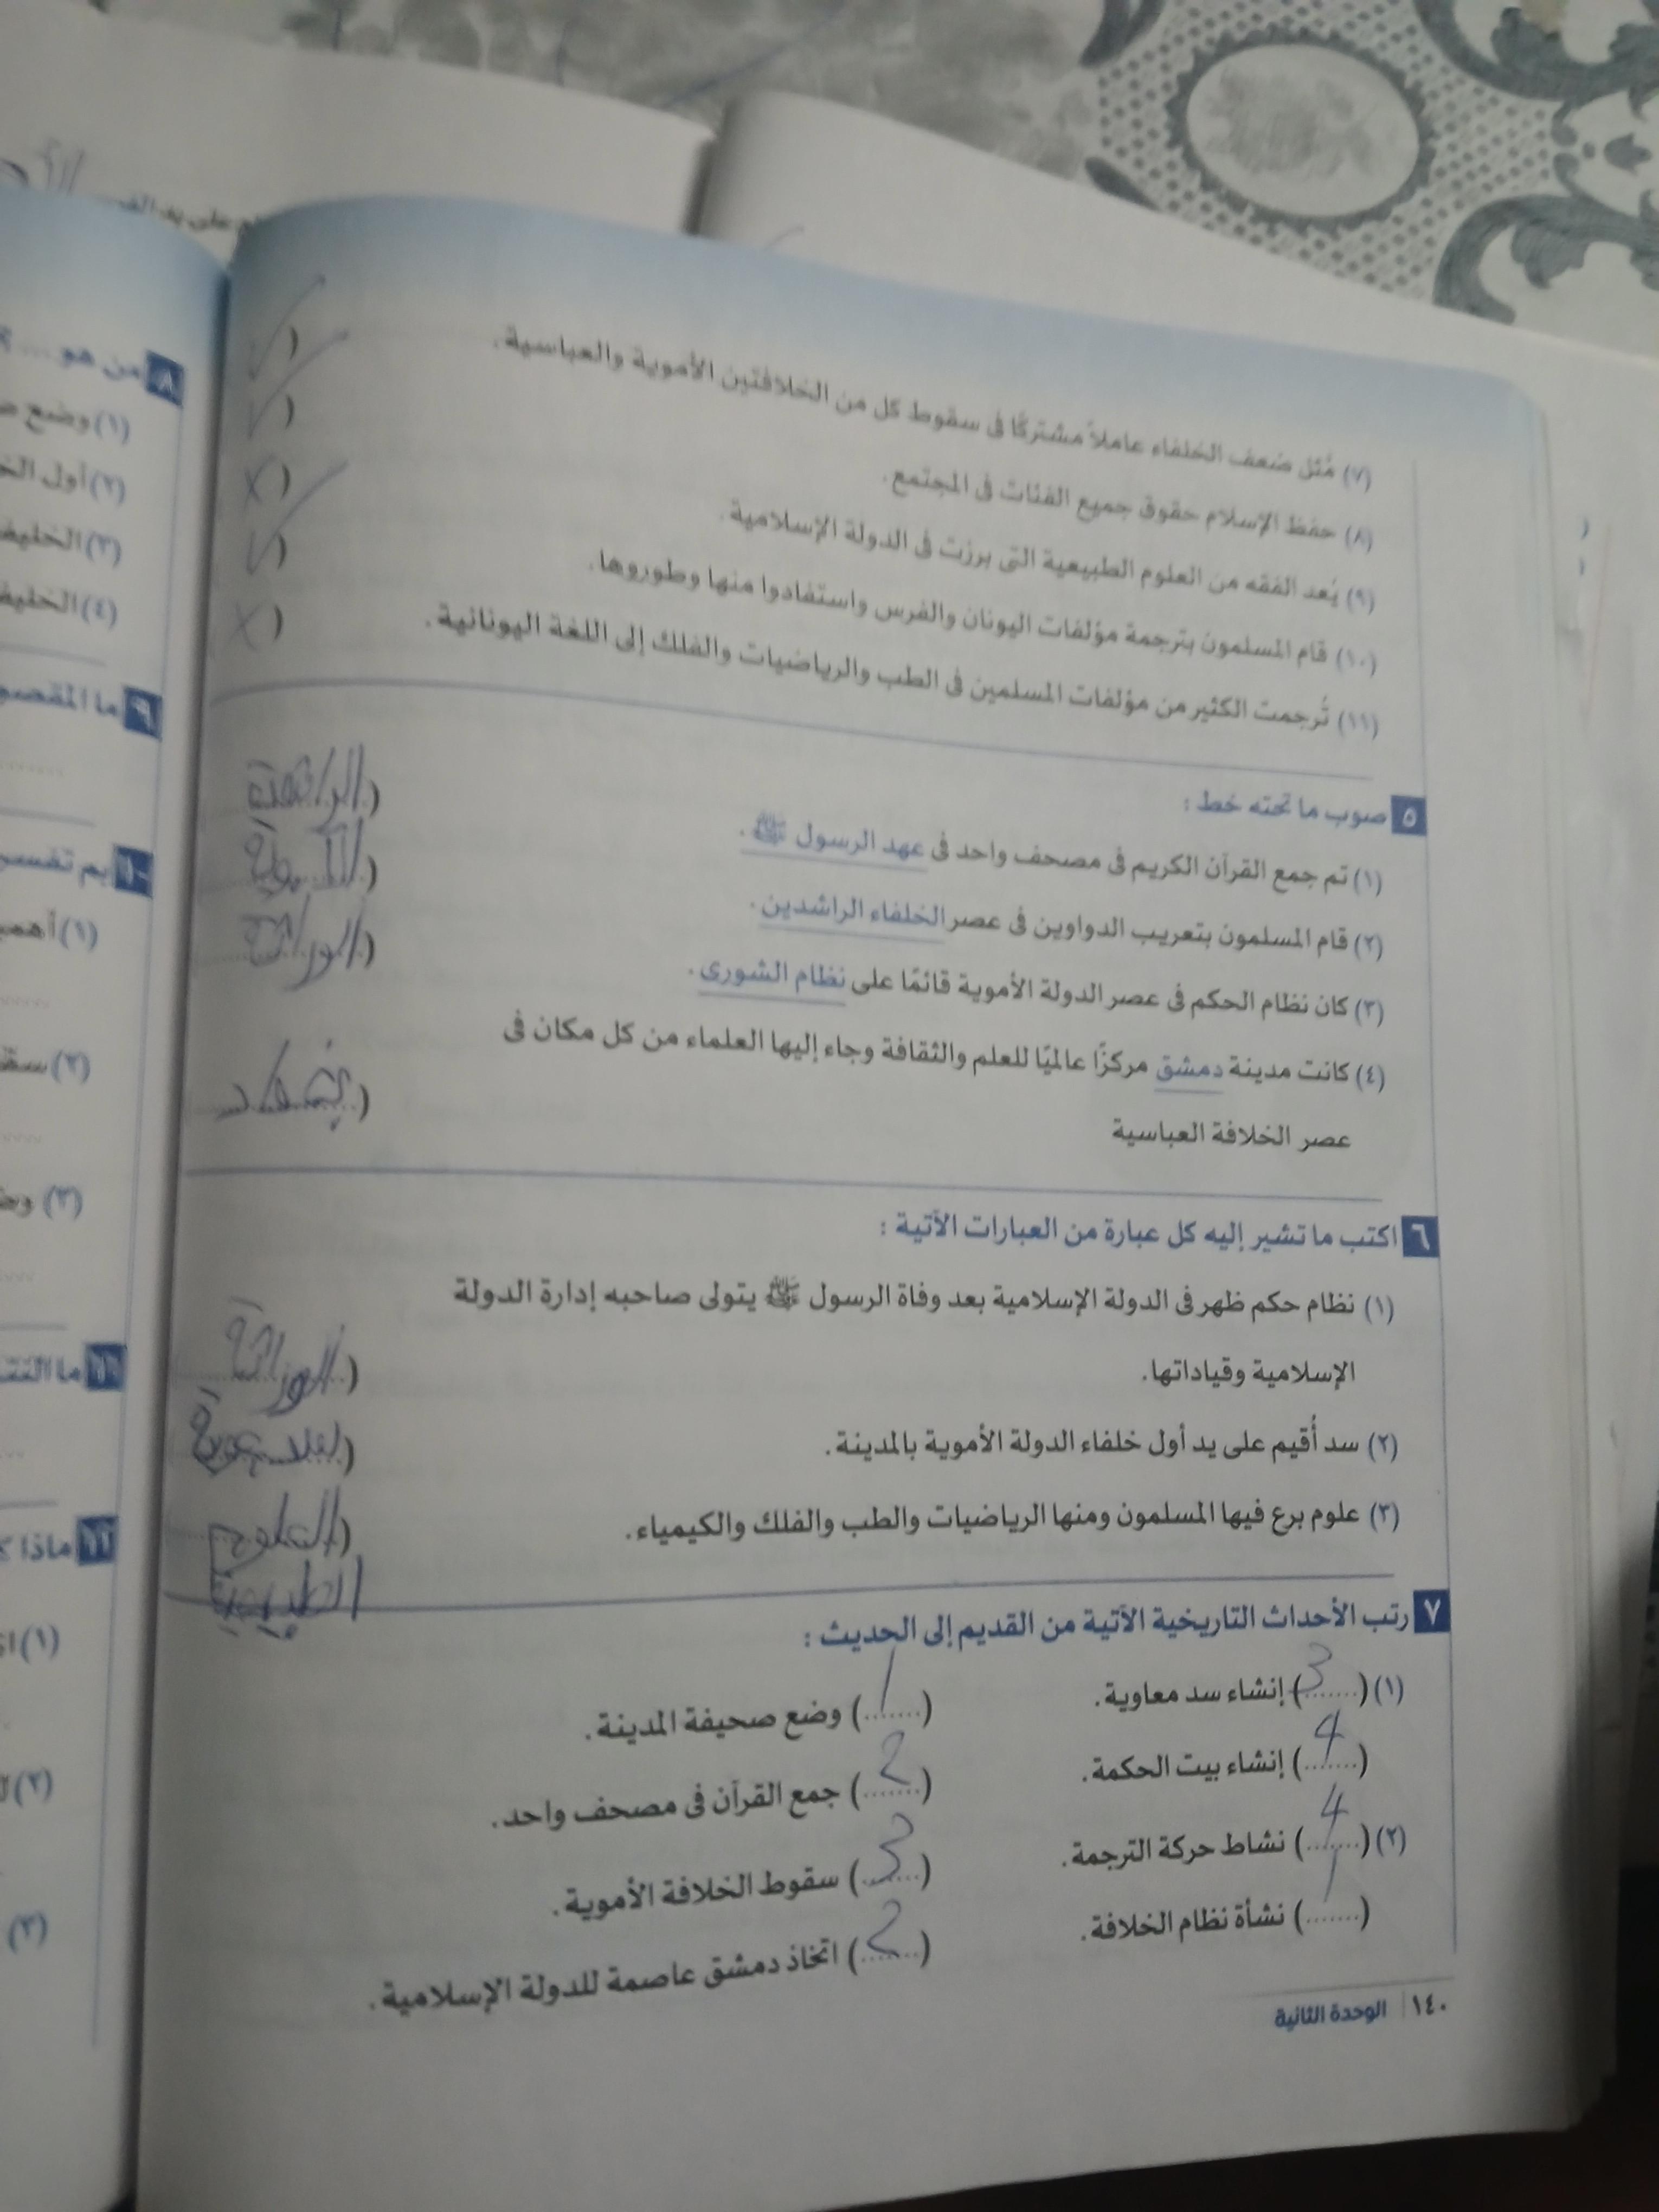 (٧) مثل ضعف الخلفاء عاملاً مشتركًا فى سقوط كل من الخلافتين الأموية والعباسية. ( ✓
(٨) حفظ الإسلام حقوق جميع الفئات فى المجتمع. ( ✓
(٩) يُعد الفقه من العلوم الطبيعية التى برزت فى الدولة الإسلامية. ( X
(١٠) قام المسلمون بترجمة مؤلفات اليونان والفرس واستفادوا منها وطوروها. ( ✓
(١١) تُرجمت الكثير من مؤلفات المسلمين فى الطب والرياضيات والفلك إلى اللغة اليونانية. ( X
٥ صوب ما تحته خط :
(١) تم جمع القرآن الكريم فى مصحف واحد فى عهد الرسول ﷺ. (
(٢) قام المسلمون بتعريب الدواوين فى عصر الخلفاء الراشدين. (
(٣) كان نظام الحكم فى عصر الدولة الأموية قائمًا على نظام الشورى. (
(٤) كانت مدينة دمشق مركزًا عالميًا للعلم والثقافة وجاء إليها العلماء من كل مكان فى
عصر الخلافة العباسية ( بغداد
٦ اكتب ما تشير إليه كل عبارة من العبارات الآتية :
(١) نظام حكم ظهر فى الدولة الإسلامية بعد وفاة الرسول ﷺ يتولى صاحبه إدارة الدولة
الإسلامية وقياداتها. (
(٢) سد أُقيم على يد أول خلفاء الدولة الأموية بالمدينة. (
(٣) علوم برع فيها المسلمون ومنها الرياضيات والطب والفلك والكيمياء. ( العلوم
الطبيعية
٧ رتب الأحداث التاريخية الآتية من القديم إلى الحديث :
(١) (3) إنشاء سد معاوية. (1) وضع صحيفة المدينة.
(4) إنشاء بيت الحكمة. (2) جمع القرآن فى مصحف واحد.
(٢) (4) نشاط حركة الترجمة. (3) سقوط الخلافة الأموية.
(1) نشأة نظام الخلافة. (2) اتخاذ دمشق عاصمة للدولة الإسلامية.
١٤٠ | الوحدة الثانية
٨ من هو ....
(١) وضع
(٢) أول
(٣)
(٤)
٩ ما
١٠ بم
(١)
(٢)
(٣)
١١ ما
١٢ ماذا
(١)
(٢)
(٣)